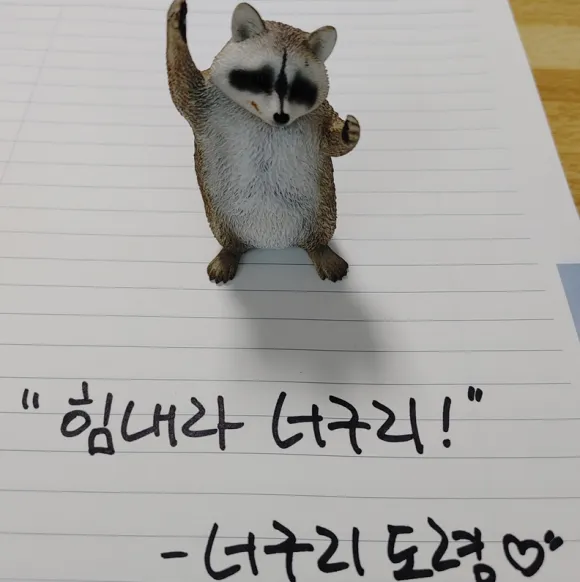 "힘내라 너구리!"
-너구리 도령♡